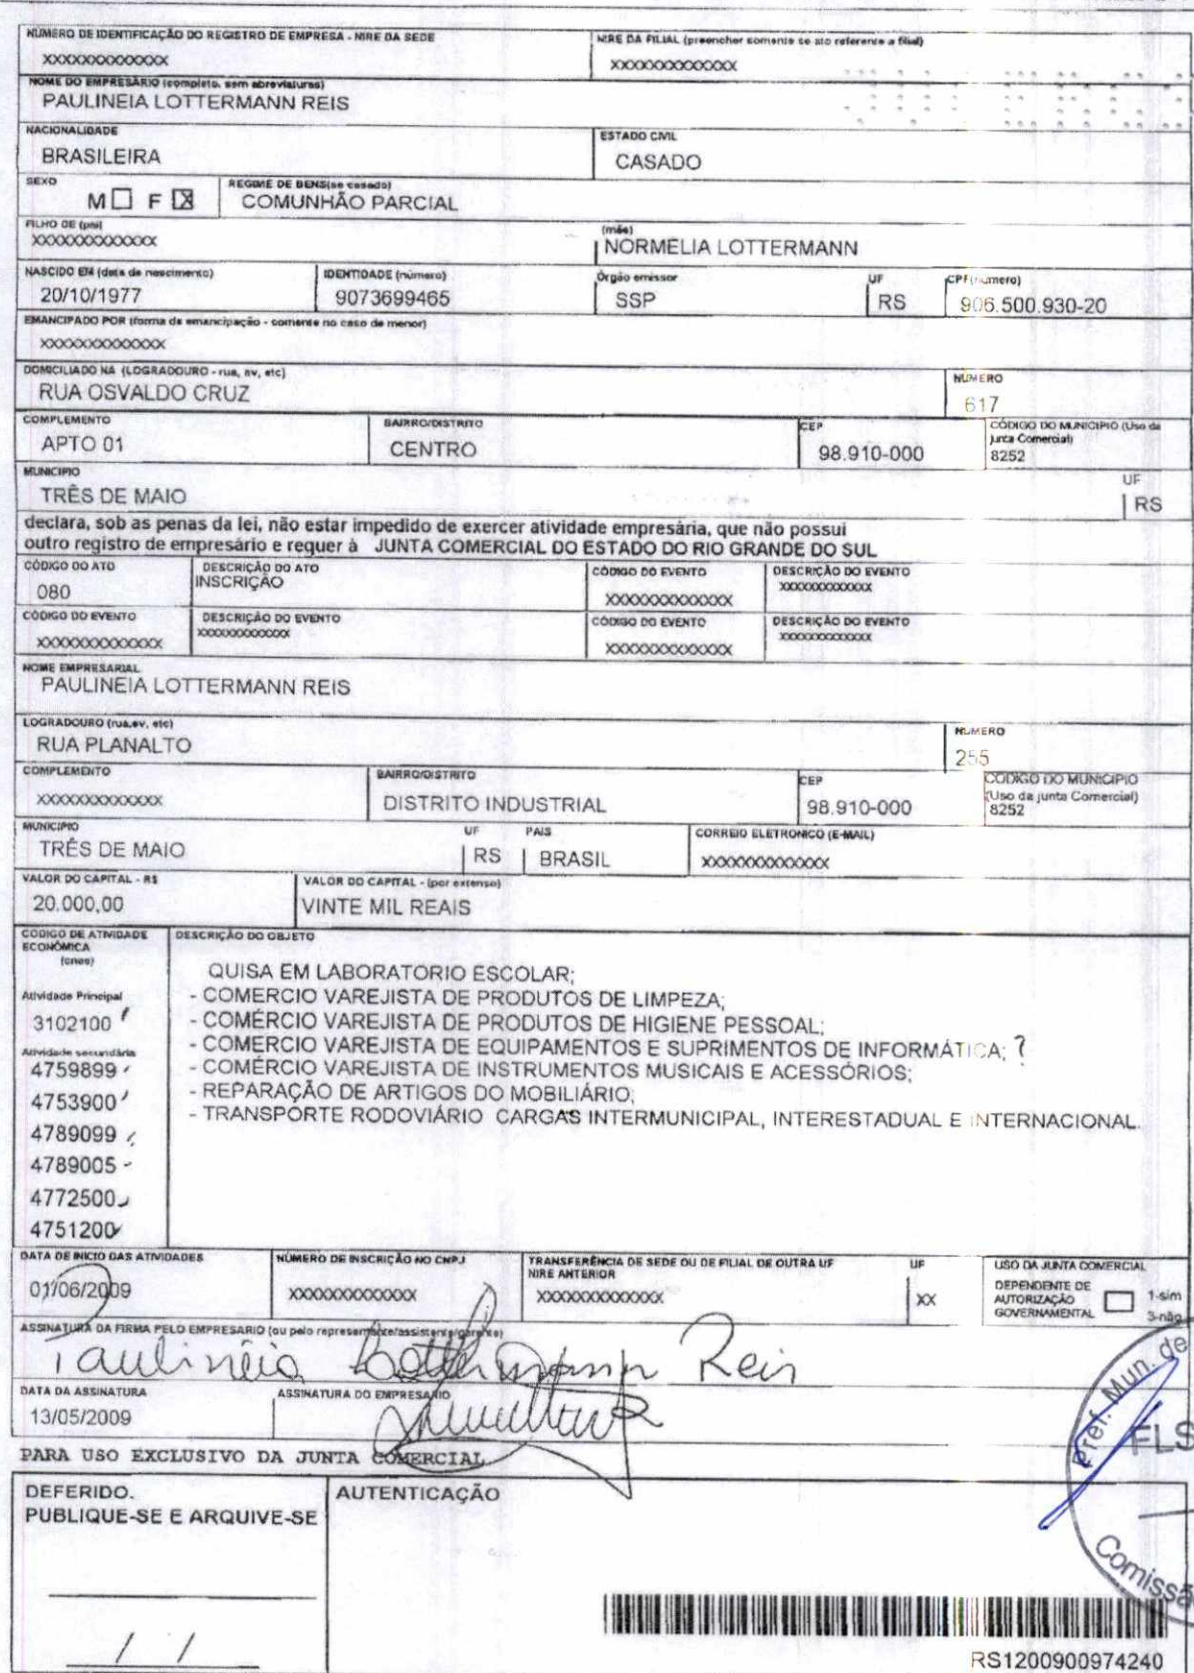 NÚMERO DE IDENTIFICAÇÃO DO REGISTRO DE EMPRESA - NIRE DA SEDE
XXXXXXXXXXXXX
NIRE DA FILIAL (preencher somente se ato referente a filial)
XXXXXXXXXXXXX
NOME DO EMPRESÁRIO (completo, sem abreviaturas)
PAULINEIA LOTTERMANN REIS
NACIONALIDADE
BRASILEIRA
ESTADO CIVIL
CASADO
SEXO
M F X
REGIME DE BENS(se casado)
COMUNHÃO PARCIAL
FILHO DE (pai)
XXXXXXXXXXXXX
(mãe)
NORMELIA LOTTERMANN
NASCIDO EM (data de nascimento)
20/10/1977
IDENTIDADE (número)
9073699465
Órgão emissor
SSP
UF
RS
CPF(número)
906.500.930-20
EMANCIPADO POR (forma de emancipação - somente no caso de menor)
XXXXXXXXXXXXX
DOMICILIADO NA (LOGRADOURO - rua, av, etc)
RUA OSVALDO CRUZ
NUMERO
617
COMPLEMENTO
APTO 01
BAIRRO/DISTRITO
CENTRO
CEP
98.910-000
CÓDIGO DO MUNICIPIO (Uso da
junta Comercial)
8252
MUNICIPIO
TRÊS DE MAIO
UF
RS
declara, sob as penas da lei, não estar impedido de exercer atividade empresária, que não possui
outro registro de empresário e requer à JUNTA COMERCIAL DO ESTADO DO RIO GRANDE DO SUL
CÓDIGO DO ATO
080
DESCRIÇÃO DO ATO
INSCRIÇÃO
CÓDIGO DO EVENTO
XXXXXXXXXXXXX
DESCRIÇÃO DO EVENTO
XXXXXXXXXXXXX
CÓDIGO DO EVENTO
XXXXXXXXXXXXX
DESCRIÇÃO DO EVENTO
XXXXXXXXXXXXX
CÓDIGO DO EVENTO
XXXXXXXXXXXXX
DESCRIÇÃO DO EVENTO
XXXXXXXXXXXXX
NOME EMPRESARIAL
PAULINEIA LOTTERMANN REIS
LOGRADOURO (rua,av, etc)
RUA PLANALTO
NUMERO
255
COMPLEMENTO
XXXXXXXXXXXXX
BAIRRO/DISTRITO
DISTRITO INDUSTRIAL
CEP
98.910-000
CODIGO DO MUNICIPIO
(Uso da junta Comercial)
8252
MUNICIPIO
TRÊS DE MAIO
UF
RS
PAIS
BRASIL
CORREIO ELETRONICO (E-MAIL)
XXXXXXXXXXXXX
VALOR DO CAPITAL - R$
20.000,00
VALOR DO CAPITAL - (por extenso)
VINTE MIL REAIS
CODIGO DE ATIVIDADE
ECONÔMICA
(cnae)
Atividade Principal
3102100
Atividade secundária
4759899
4753900
4789099
4789005
4772500
4751200
DESCRIÇÃO DO OBJETO
QUISA EM LABORATORIO ESCOLAR;
- COMERCIO VAREJISTA DE PRODUTOS DE LIMPEZA;
- COMÉRCIO VAREJISTA DE PRODUTOS DE HIGIENE PESSOAL;
- COMERCIO VAREJISTA DE EQUIPAMENTOS E SUPRIMENTOS DE INFORMÁTICA; ?
- COMÉRCIO VAREJISTA DE INSTRUMENTOS MUSICAIS E ACESSÓRIOS;
- REPARAÇÃO DE ARTIGOS DO MOBILIÁRIO;
- TRANSPORTE RODOVIÁRIO CARGAS INTERMUNICIPAL, INTERESTADUAL E INTERNACIONAL.
DATA DE INICIO DAS ATIVIDADES
01/06/2009
NÚMERO DE INSCRIÇÃO NO CNPJ
XXXXXXXXXXXXX
TRANSFERÊNCIA DE SEDE OU DE FILIAL DE OUTRA UF
NIRE ANTERIOR
XXXXXXXXXXXXX
UF
XX
USO DA JUNTA COMERCIAL
DEPENDENTE DE
AUTORIZAÇÃO
GOVERNAMENTAL
1-sim
3-não
ASSINATURA DA FIRMA PELO EMPRESARIO (ou pelo representante/assistente/gerente)
Paulinéia Lottermann Reis
DATA DA ASSINATURA
13/05/2009
ASSINATURA DO EMPRESARIO
PARA USO EXCLUSIVO DA JUNTA COMERCIAL
DEFERIDO.
PUBLIQUE-SE E ARQUIVE-SE
/ /
AUTENTICAÇÃO
RS1200900974240
Pref. Mun. de
FLS
Comissão